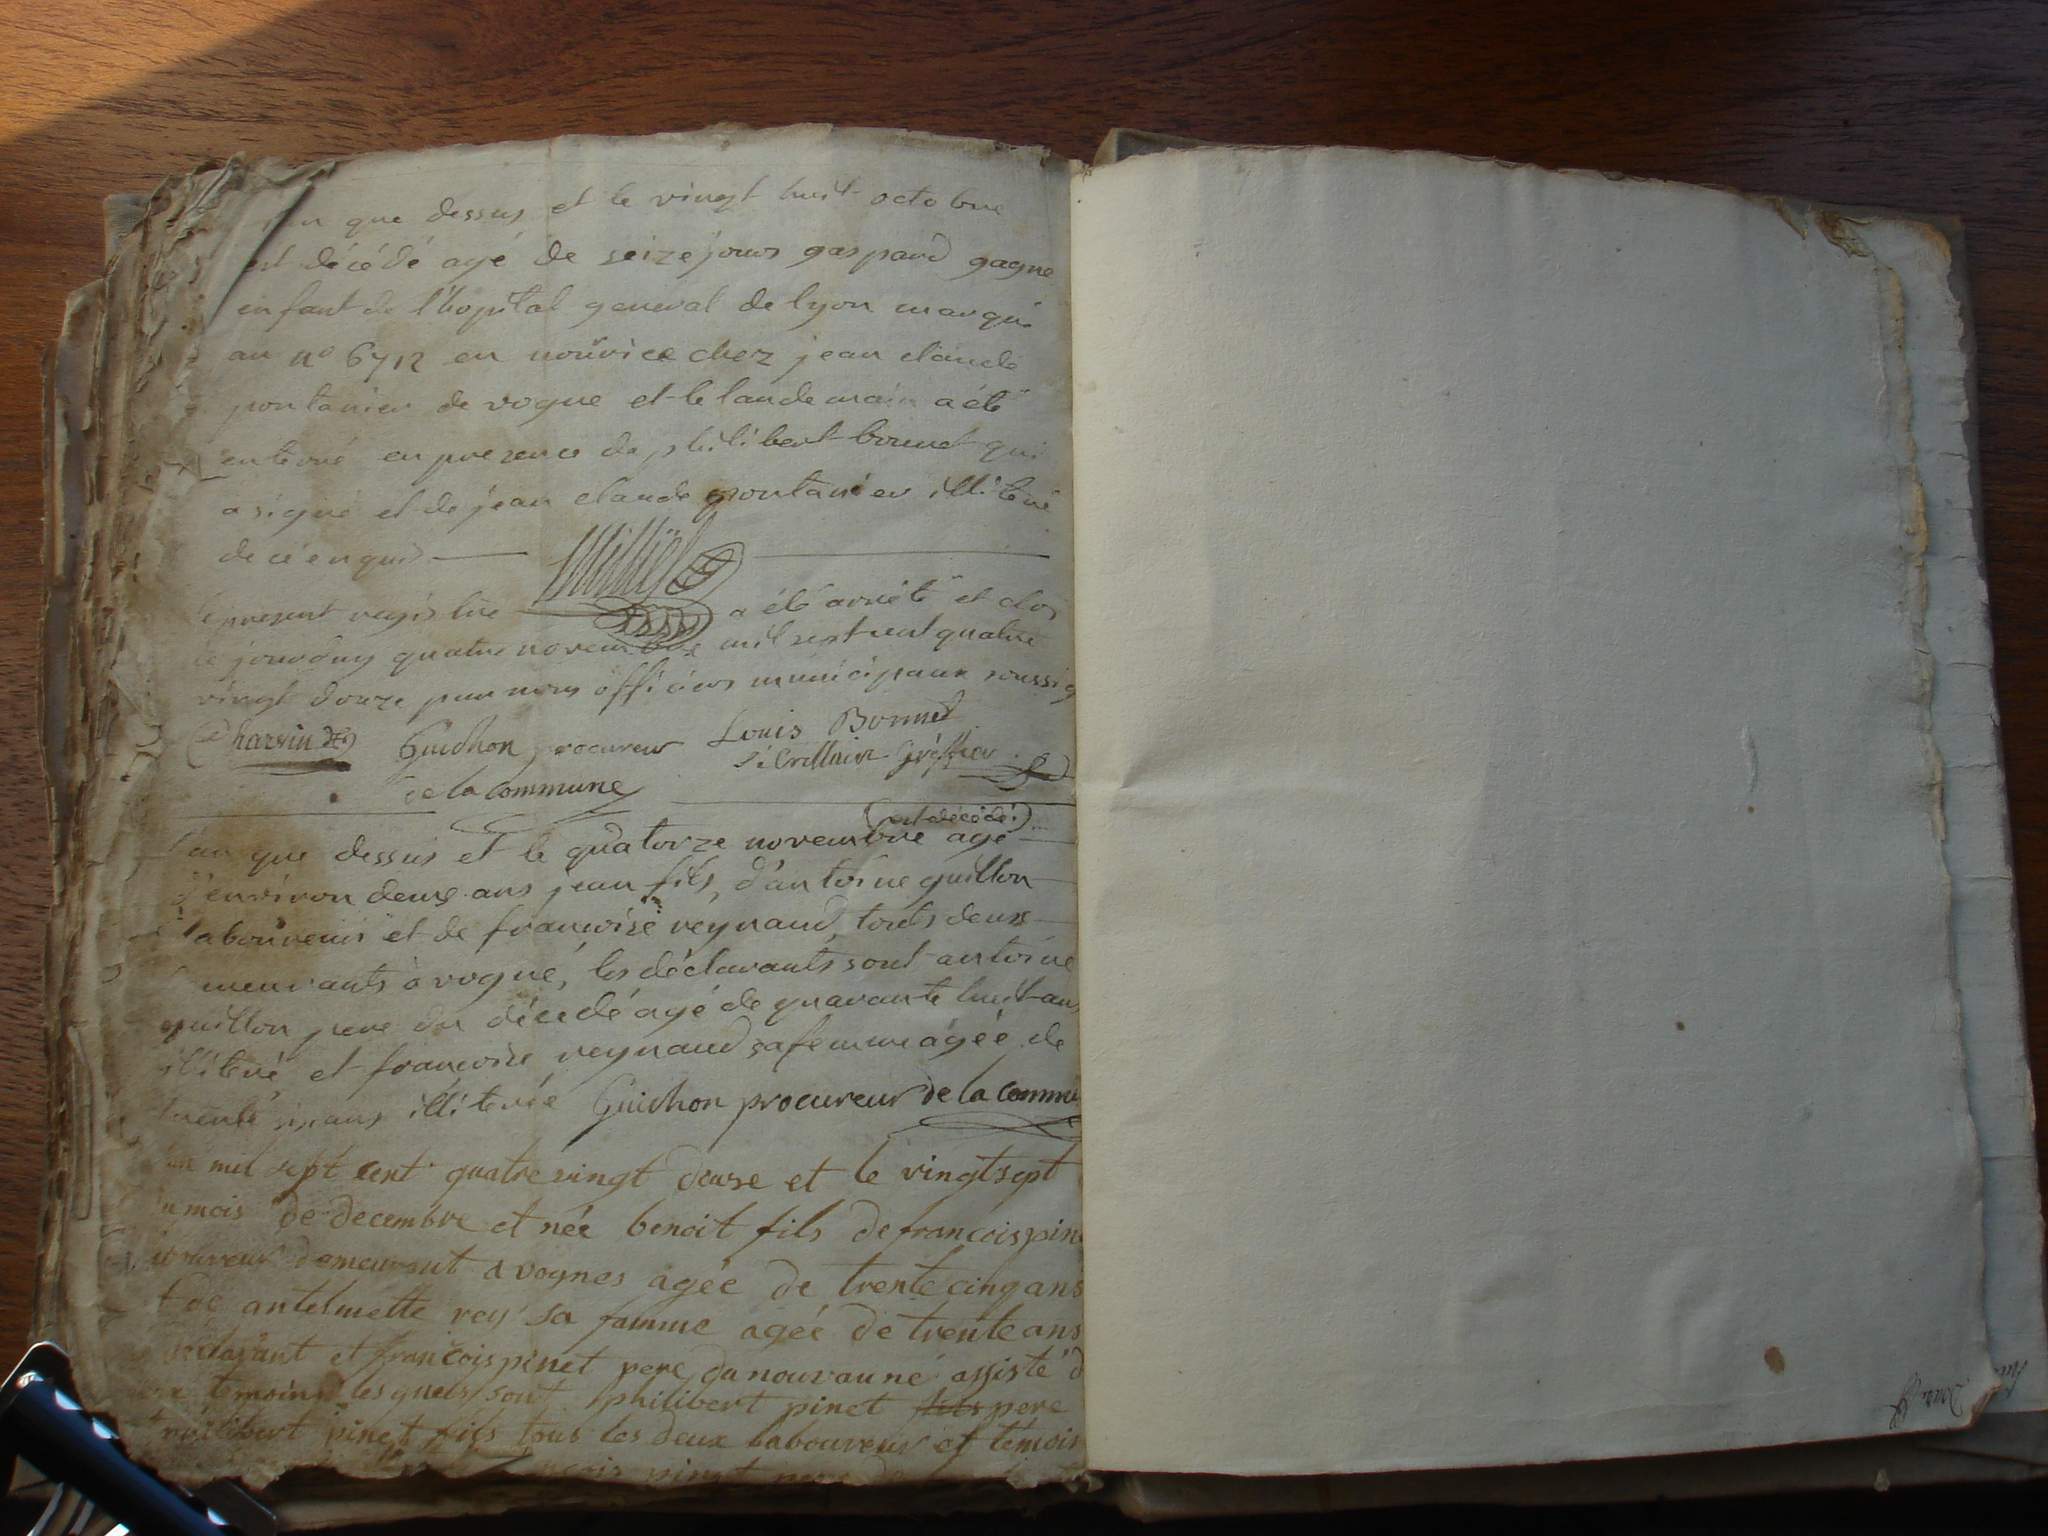 an que dessus et le vingt huit octobre
est décédé agé de seize jours gaspard gagne
enfant de l'hopital general de lyon marqué
au n° 6712 en nourice chez jean claude
pontanier de vogne et le landemain a été
enterré en presence de philibert bonnet qui
a signé et de jean claude pontanier illiteré
de ce enquis Millÿet
le present registre a été arrêté et clos
ce jourdhuy quatre novembre mil sept cent quatre
vingt douze par nous officiers municipaux soussig
Charvin Guichon procureur Louis Bonnet
de la commune Sécrettaire Gréffier
(est décédé)
l'an que dessus et le quatorze novembre agé
d'environ deux ans jean fils d'antoine guillon
laboureur et de francoise reynaud, touts deux
meurants à vogne, les déclarants sont antoine
guillon pere du décedé agé de quarante huit ans
illiteré et francoise reynaud sa femme agée de
trente six ans illiterée Guichon procureur de la commu
mil sept cent quatre vingt douse et le vingt sept
du mois de decembre et née benoit fils de francois pin
demeurant a vognes agée de trente cinq ans
et de antelmette rey sa famme agée de trente ans
declarant et francois pinet pere du nouvauné assisté d
temoins les quels sont philibert pinet fils pere
philibert pinet fils tous les deux laboureur et témoin
francois pinet pere